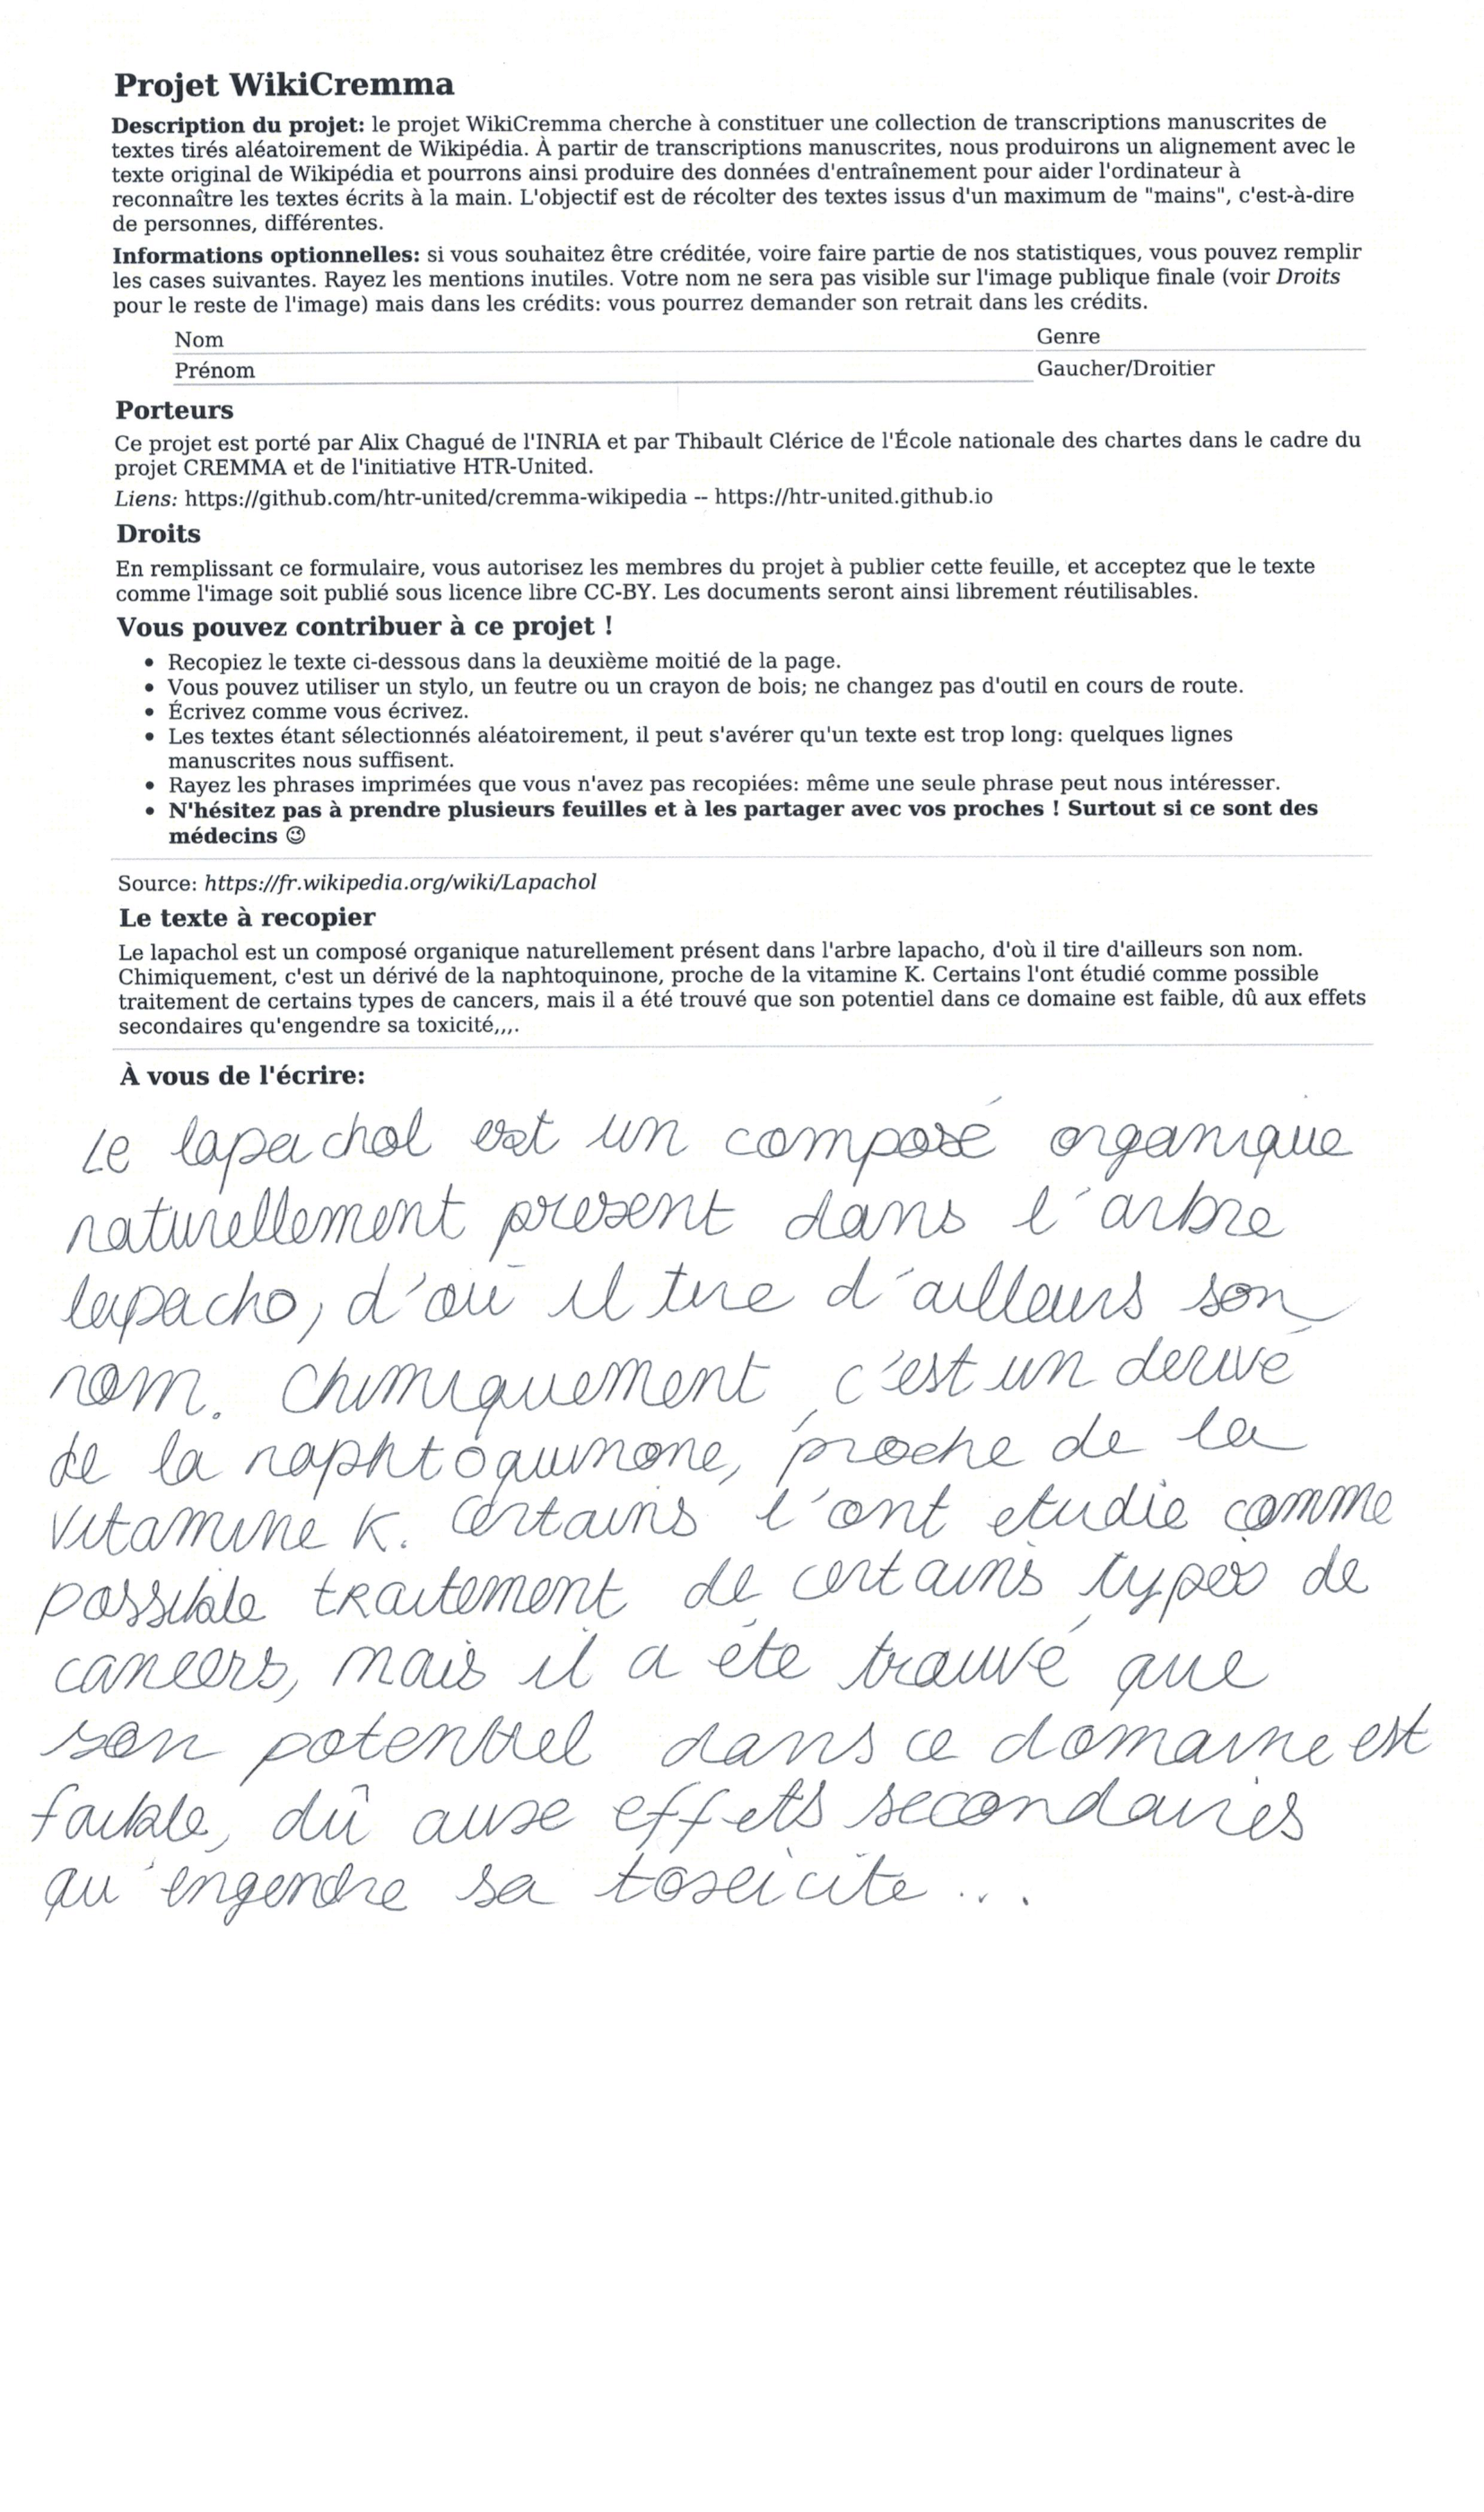 Projet WikiCremma
Description du projet: le projet WikiCremma cherche à constituer une collection de transcriptions manuscrites de
textes tirés aléatoirement de Wikipédia. À partir de transcriptions manuscrites, nous produirons un alignement avec le
texte original de Wikipédia et pourrons ainsi produire des données d'entraînement pour aider l'ordinateur à
reconnaître les textes écrits à la main. L'objectif est de récolter des textes issus d'un maximum de "mains", c'est-à-dire
de personnes, différentes.
Informations optionnelles: si vous souhaitez être créditée, voire faire partie de nos statistiques, vous pouvez remplir
les cases suivantes. Rayez les mentions inutiles. Votre nom ne sera pas visible sur l'image publique finale (voir Droits
pour le reste de l'image) mais dans les crédits: vous pourrez demander son retrait dans les crédits.
Nom Genre
Prénom Gaucher/Droitier
Porteurs
Ce projet est porté par Alix Chagué de l'INRIA et par Thibault Clérice de l'École nationale des chartes dans le cadre du
projet CREMMA et de l'initiative HTR-United.
Liens: https://github.com/htr-united/cremma-wikipedia -- https://htr-united.github.io
Droits
En remplissant ce formulaire, vous autorisez les membres du projet à publier cette feuille, et acceptez que le texte
comme l'image soit publié sous licence libre CC-BY. Les documents seront ainsi librement réutilisables.
Vous pouvez contribuer à ce projet !
• Recopiez le texte ci-dessous dans la deuxième moitié de la page.
• Vous pouvez utiliser un stylo, un feutre ou un crayon de bois; ne changez pas d'outil en cours de route.
• Écrivez comme vous écrivez.
• Les textes étant sélectionnés aléatoirement, il peut s'avérer qu'un texte est trop long: quelques lignes
manuscrites nous suffisent.
• Rayez les phrases imprimées que vous n'avez pas recopiées: même une seule phrase peut nous intéresser.
• N'hésitez pas à prendre plusieurs feuilles et à les partager avec vos proches ! Surtout si ce sont des
médecins 😉
Source: https://fr.wikipedia.org/wiki/Lapachol
Le texte à recopier
Le lapachol est un composé organique naturellement présent dans l'arbre lapacho, d'où il tire d'ailleurs son nom.
Chimiquement, c'est un dérivé de la naphtoquinone, proche de la vitamine K. Certains l'ont étudié comme possible
traitement de certains types de cancers, mais il a été trouvé que son potentiel dans ce domaine est faible, dû aux effets
secondaires qu'engendre sa toxicité,,,.
À vous de l'écrire:
Le lapachol est un composé organique
naturellement present dans l'arbre
lapacho, d'où il tire d'ailleurs son
nom. Chimiquement, c'est un derivé
de la naphtoquinone, proche de la
vitamine K. Certains l'ont etudie comme
possible traitement de certains types de
cancers, mais il a éte trouvé que
son potentiel dans ce domaine est
faible, dû aux effets secondaires
qu'engendre sa toxicite...